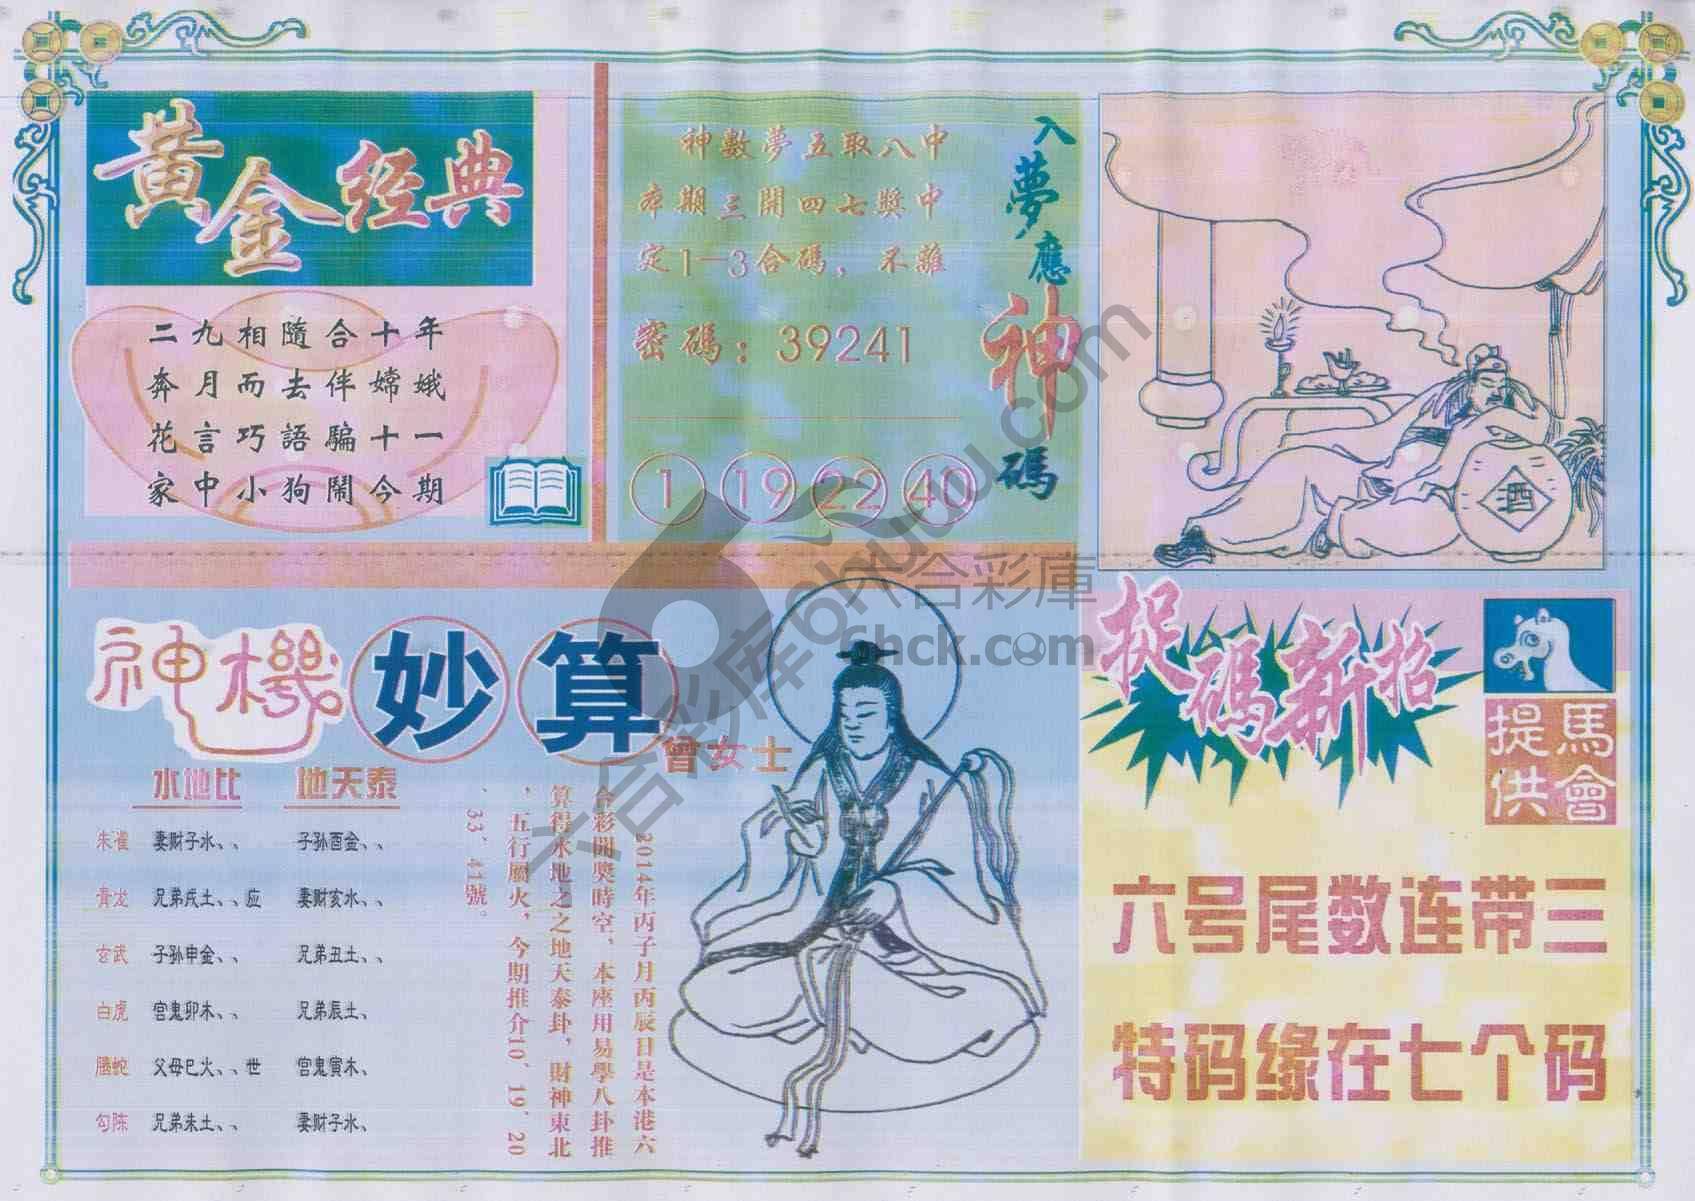 黃金经典
二九相隨合十年
奔月而去伴嫦娥
花言巧語騙十一
家中小狗鬧今期
神數夢五取八中
本期三開四七獎中
定1-3合碼，不離
密碼：39241
1 19 22 40
入夢應神碼
酒
神機妙算
曾女士
水地比 地天泰
朱雀 妻财子水、、 子孙酉金、、
青龙 兄弟戌土、、应 妻财亥水、、
玄武 子孙申金、、 兄弟丑土、、
白虎 宫鬼卯木、、 兄弟辰土、
螣蛇 父母巳火、、世 宫鬼寅木、
勾陈 兄弟未土、、 妻财子水、
2014年丙子月丙辰日是本港六
合彩開獎時空，本座用易學八卦推
算得水地之之地天泰卦，財神東北
，五行屬火，今期推介10、19、20
、33、41號。
捉碼新招
馬會
提供
六号尾数连带三
特码缘在七个码
六合彩库6huuu.com
六合彩庫
6hck.com